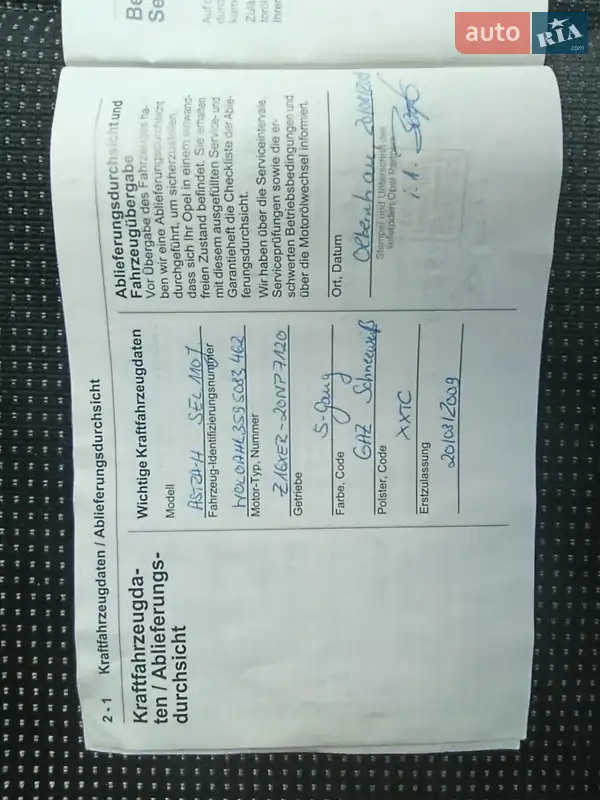 auto RIA .com
Be
Se
2 - 1 Kraftfahrzeugdaten / Ablieferungsdurchsicht
Kraftfahrzeugda-
ten / Ablieferungs-
durchsicht
Wichtige Kraftfahrzeugdaten
Modell
ASTRA-H
Fahrzeug-Identifizierungsnummer
W0L0AHL3595083462
Motor-Typ, Nummer
Z16XER-20NP7120
Getriebe
5-Gang
Farbe, Code
GAZ Schneeweiß
Polster, Code
Erstzulassung
20/03/2009
Ablieferungsdurchsicht und
Fahrzeugübergabe
Vor Übergabe des Fahrzeuges ha-
ben wir eine Ablieferungsdurchsicht
durchgeführt, um sicherzustellen,
dass sich Ihr Opel in einem einwand-
freien Zustand befindet. Sie erhalten
mit diesem ausgefüllten Service- und
Garantieheft die Checkliste der Ablie-
ferungsdurchsicht.
Wir haben über die Serviceintervalle,
Serviceprüfungen sowie die er-
schwerten Betriebsbedingungen und
über die Motorölwechsel informiert.
Ort, Datum
Stempel und Unterschrift des
liefernden Opel Partners
i.A.